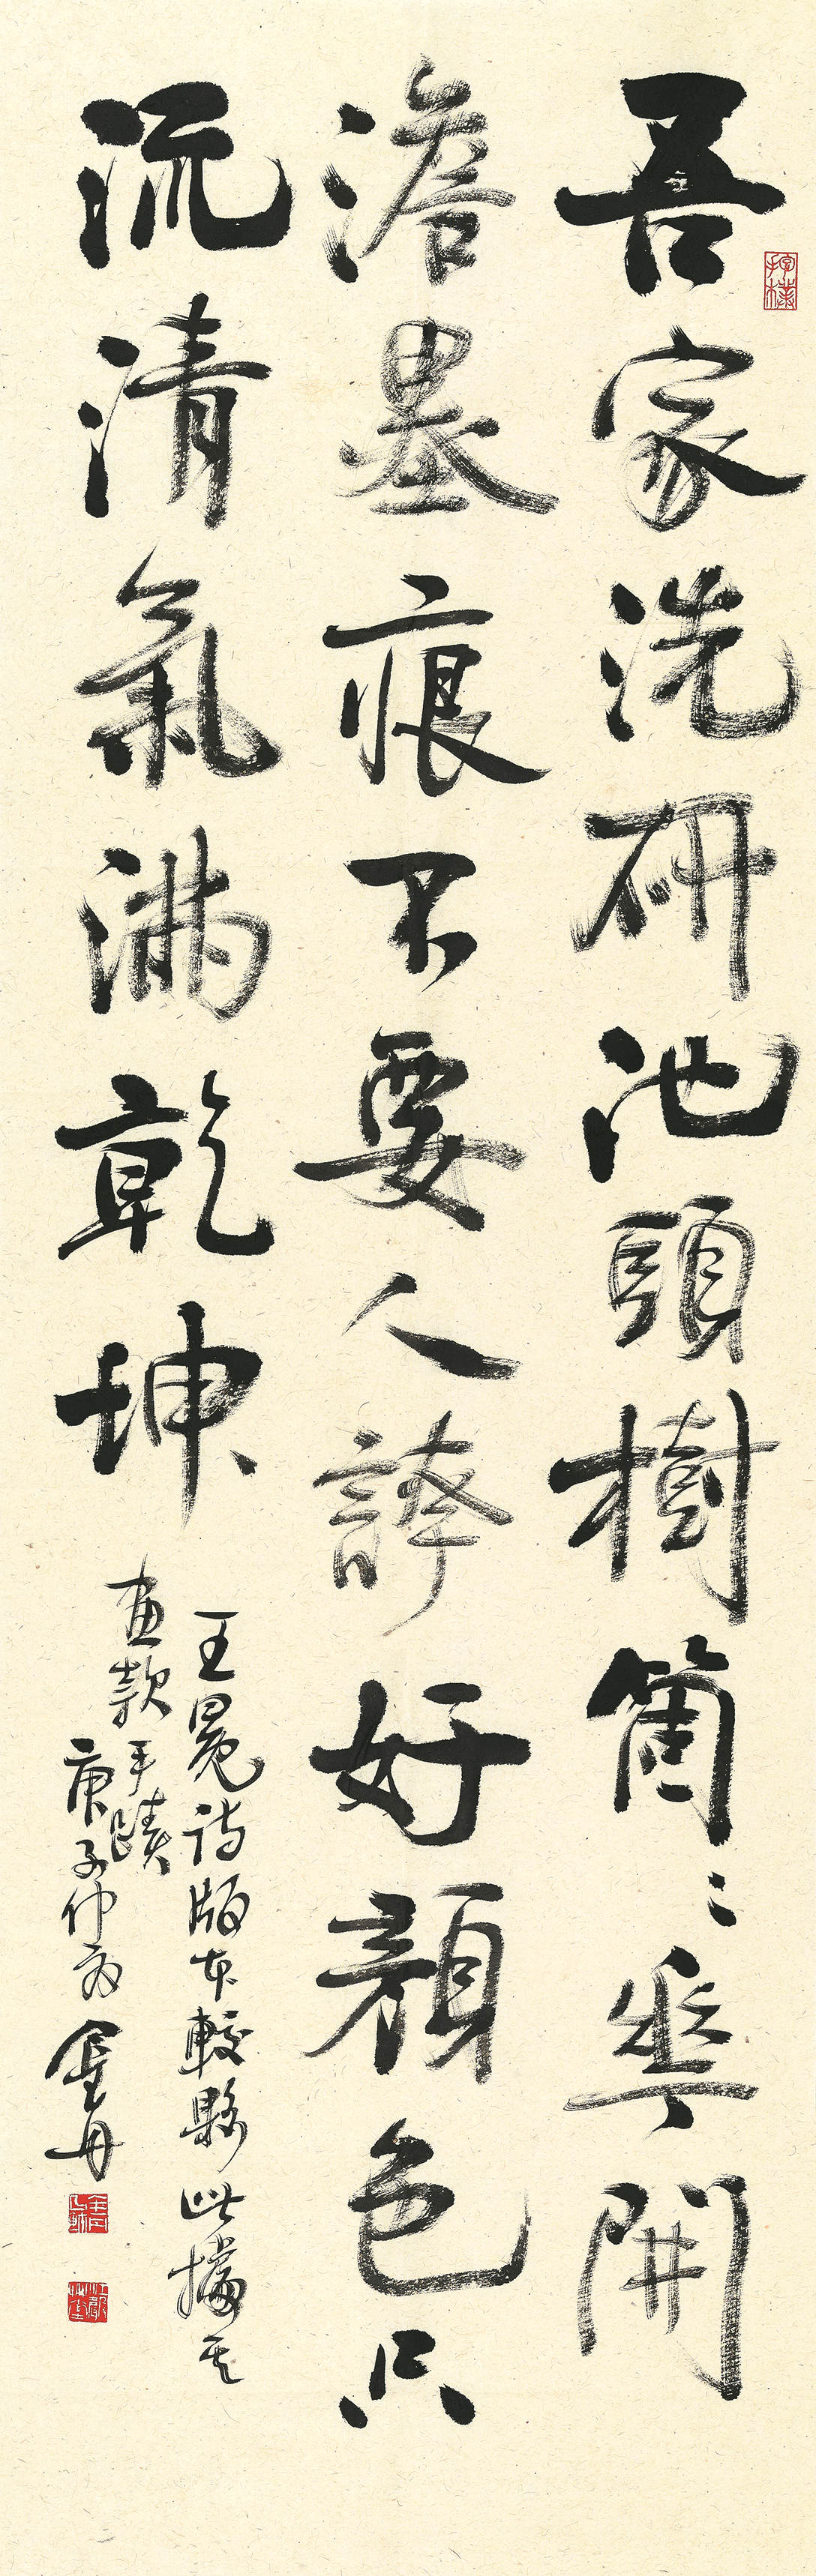 吾家洗研池頭樹箇〻華開
澹墨痕不要人誇好顏色只
流清氣滿乾坤
王冕詩版本較夥此據其
畫款手蹟
庚子仲商金丹